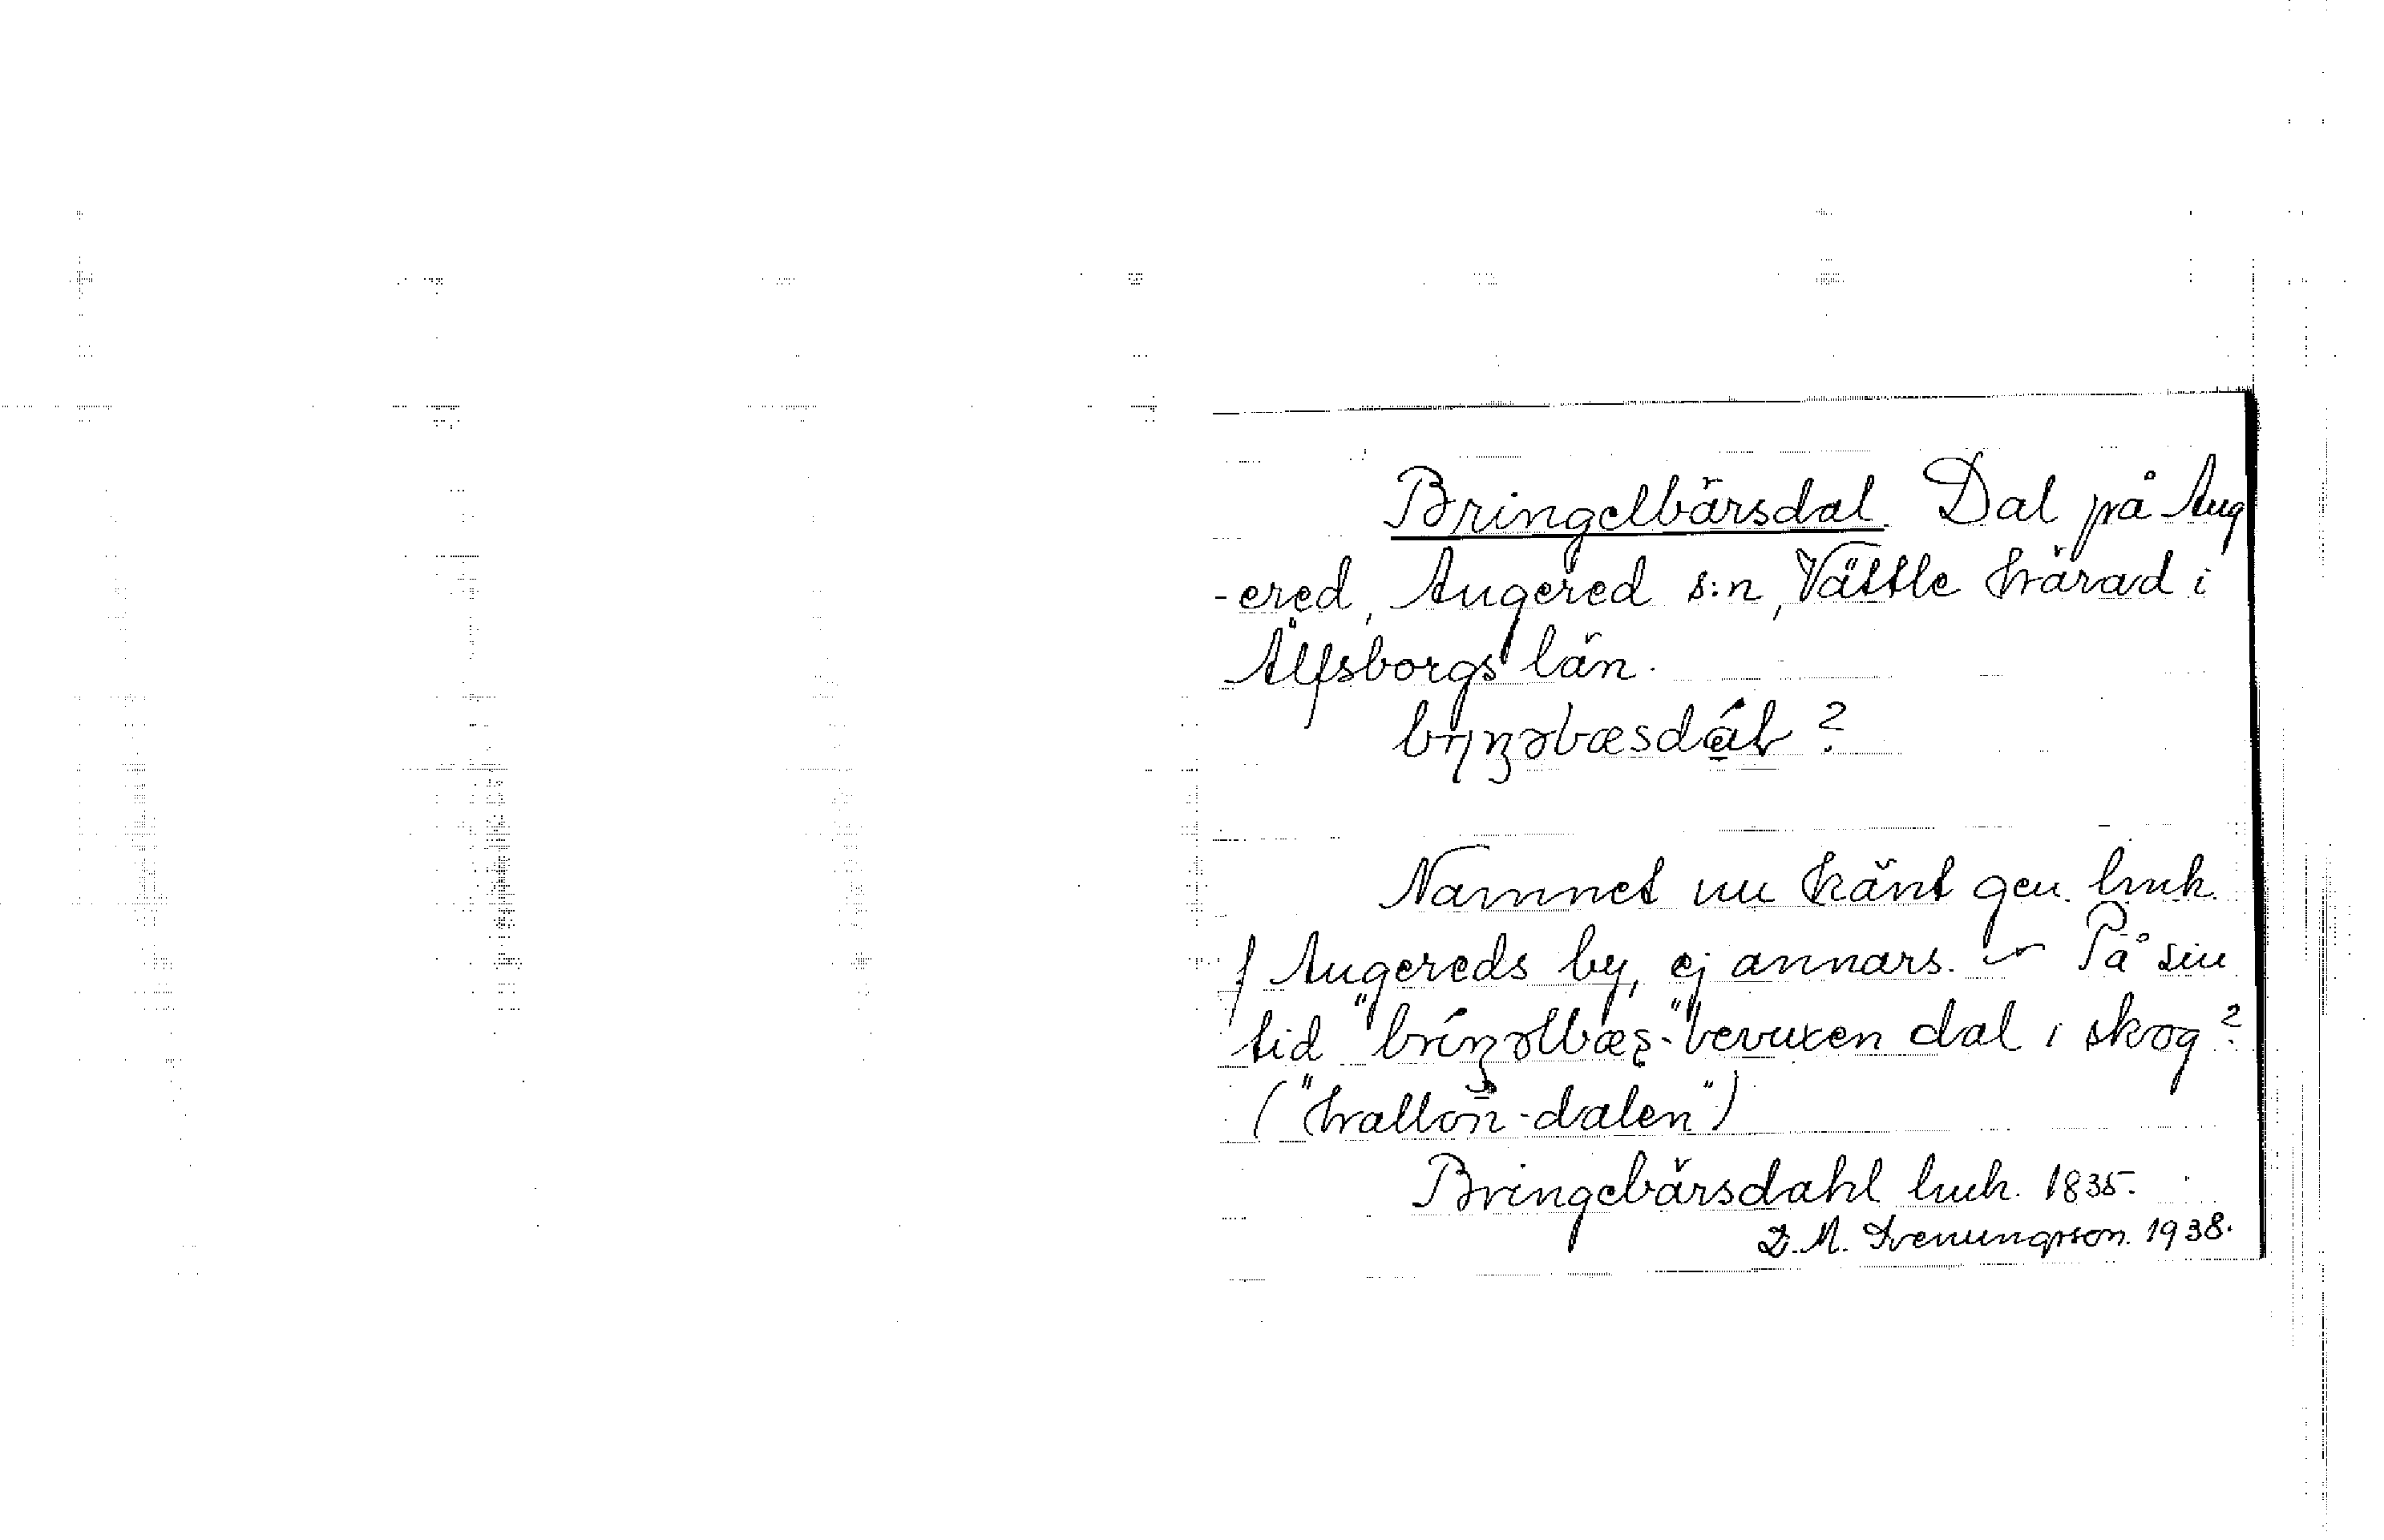 Bringelbärsdal. Dal på Aug
-ered, Augered s:n, Vättle härad i
Älfsborgs län.
?
Namnet nu känt gen. lmh.
f Augereds by, ej annars. – På sin
tid "bevuxen dal i skog?
("hallon-dalen")
Bringebärsdahl lmh. 1835.
D. A. Svenungsson. 1938.